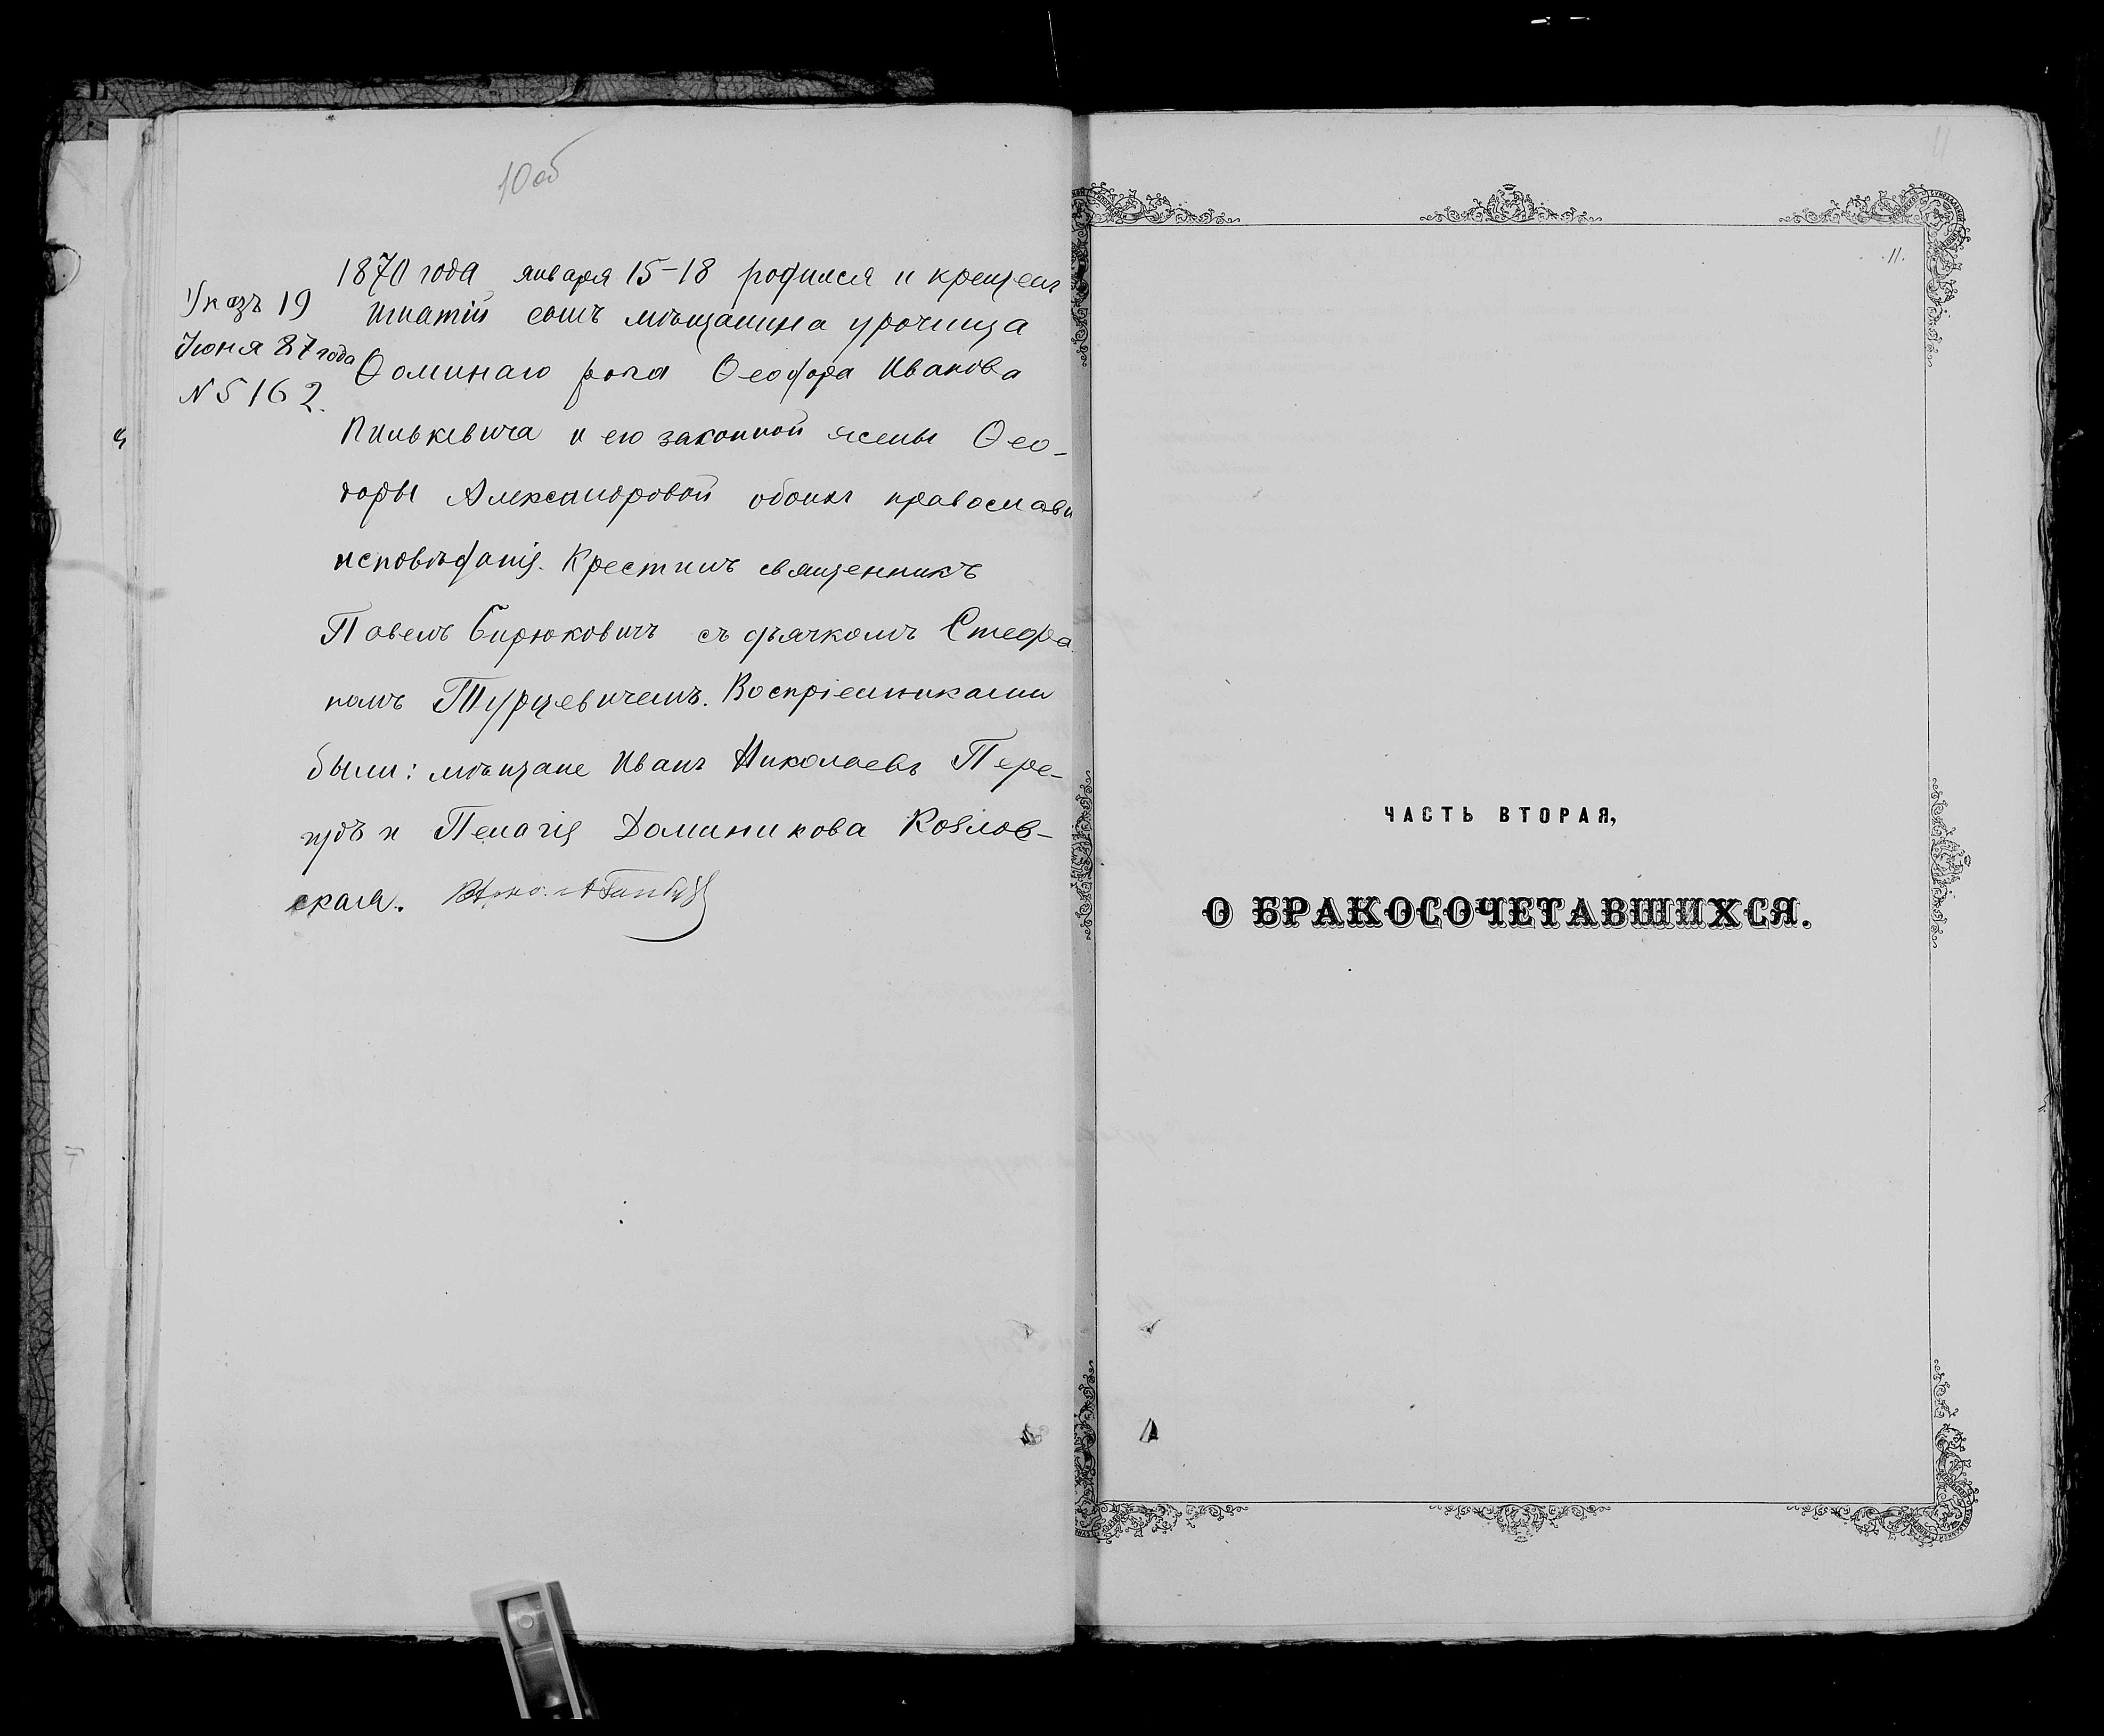 10 об
Указъ 19
Іюня 87 года
N 5162.
1870 года января 15-18 родился и крещенъ
Игнатій сынъ мѣщанина урочища
Ѳоминаго рога Ѳеодора Иванова
Пилькевича и его законной жены Ѳео-
доры Александровой обоихъ православн
исповѣданія. Крестилъ священникъ
Павелъ Бирюковичъ съ дьячкомъ Стефа
номъ Турцевичемъ. Воспріемниками
были: мѣщане Иванъ Николаевъ Пере-
и Пелагія Доминикова Козлов-
ская.
11
11.
ЧАСТЬ ВТОРАЯ,
О БРАКОСОЧЕТАВШИХСЯ.